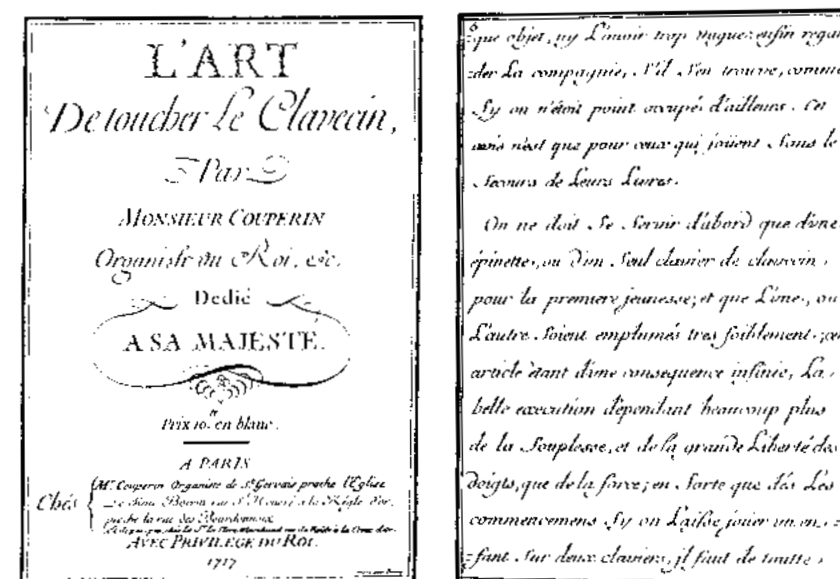 L'ART
De toucher Le Clavecin,
Par
MONSIEUR COUPERIN
Organiste du Roi, etc.
Dedié
A SA MAJESTÉ.
Prix 10.tt en blanc.
A PARIS
Chés
Mr. Couperin Organiste de St. Gervais proche l'Eglise
Le Sieur Boivin rue St. Honoré a la Règle d'or,
proche la rue des Bourdonnois.
AVEC PRIVILEGE DU ROI.
1717
6
que objet, ny L'avoir trop vague: enfin regar
=der La compagnie, S'il S'en trouve, comme
Sy on n'étoit point occupé d'ailleurs. Cet
avis n'est que pour ceux qui joüent Sans le
Secours de Leurs Livres.
On ne doit Se Servir d'abord que d'une
épinette, ou d'un Seul clavier de clavecin,
pour la premiere jeunesse; et que L'une, ou
L'autre Soient emplumés tres foiblement; cet
article étant d'une consequence infinie, La
belle execution dépendant beaucoup plus
de la Souplesse, et de la grande Liberté des
doigts, que de la force; en Sorte que dés Les
commencemens Sy on Laisse joüer un en=
=fant Sur deux claviers, il faut de toutte